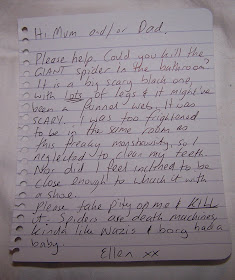 Hi Mum and/or Dad.
Please help. Could you kill the
GIANT spider in the bathroom?
It is a big scary black one,
with lots of legs & it might've
been a funnel web, it was
SCARY. I was too frightened
to be in the same room as
this freaky monstrosity, so I
neglected to clean my teeth.
Nor did I feel inclined to be
close enough to whack it with
a shoe.
Please take pity on me & KILL
it. Spiders are death machines,
kinda like Nazis & borg had a
baby.
Ellen xx